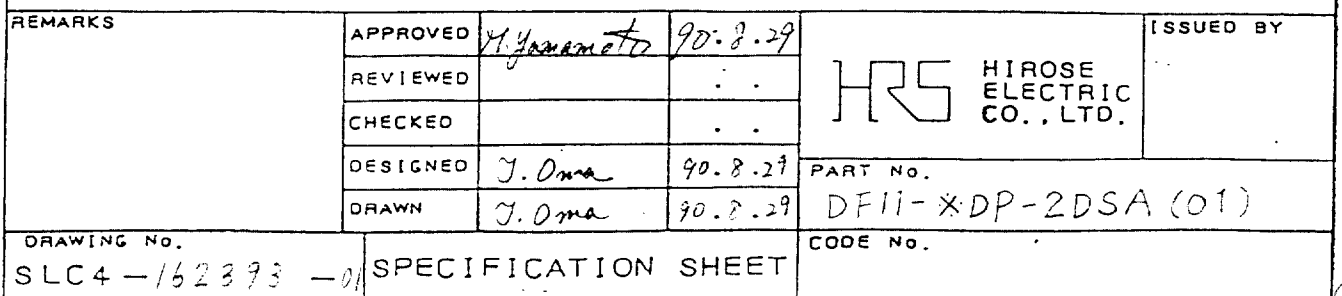 REMARKS
APPROVED M. Yamamoto 90.8.29
REVIEWED . .
CHECKED . .
DESIGNED J. Oma 90.8.29
DRAWN J. Oma 90.8.29
HRS HIROSE
ELECTRIC
CO.,LTD.
ISSUED BY
PART No.
DF11-※DP-2DSA(01)
DRAWING No.
SLC4-162393-01
SPECIFICATION SHEET
CODE No.